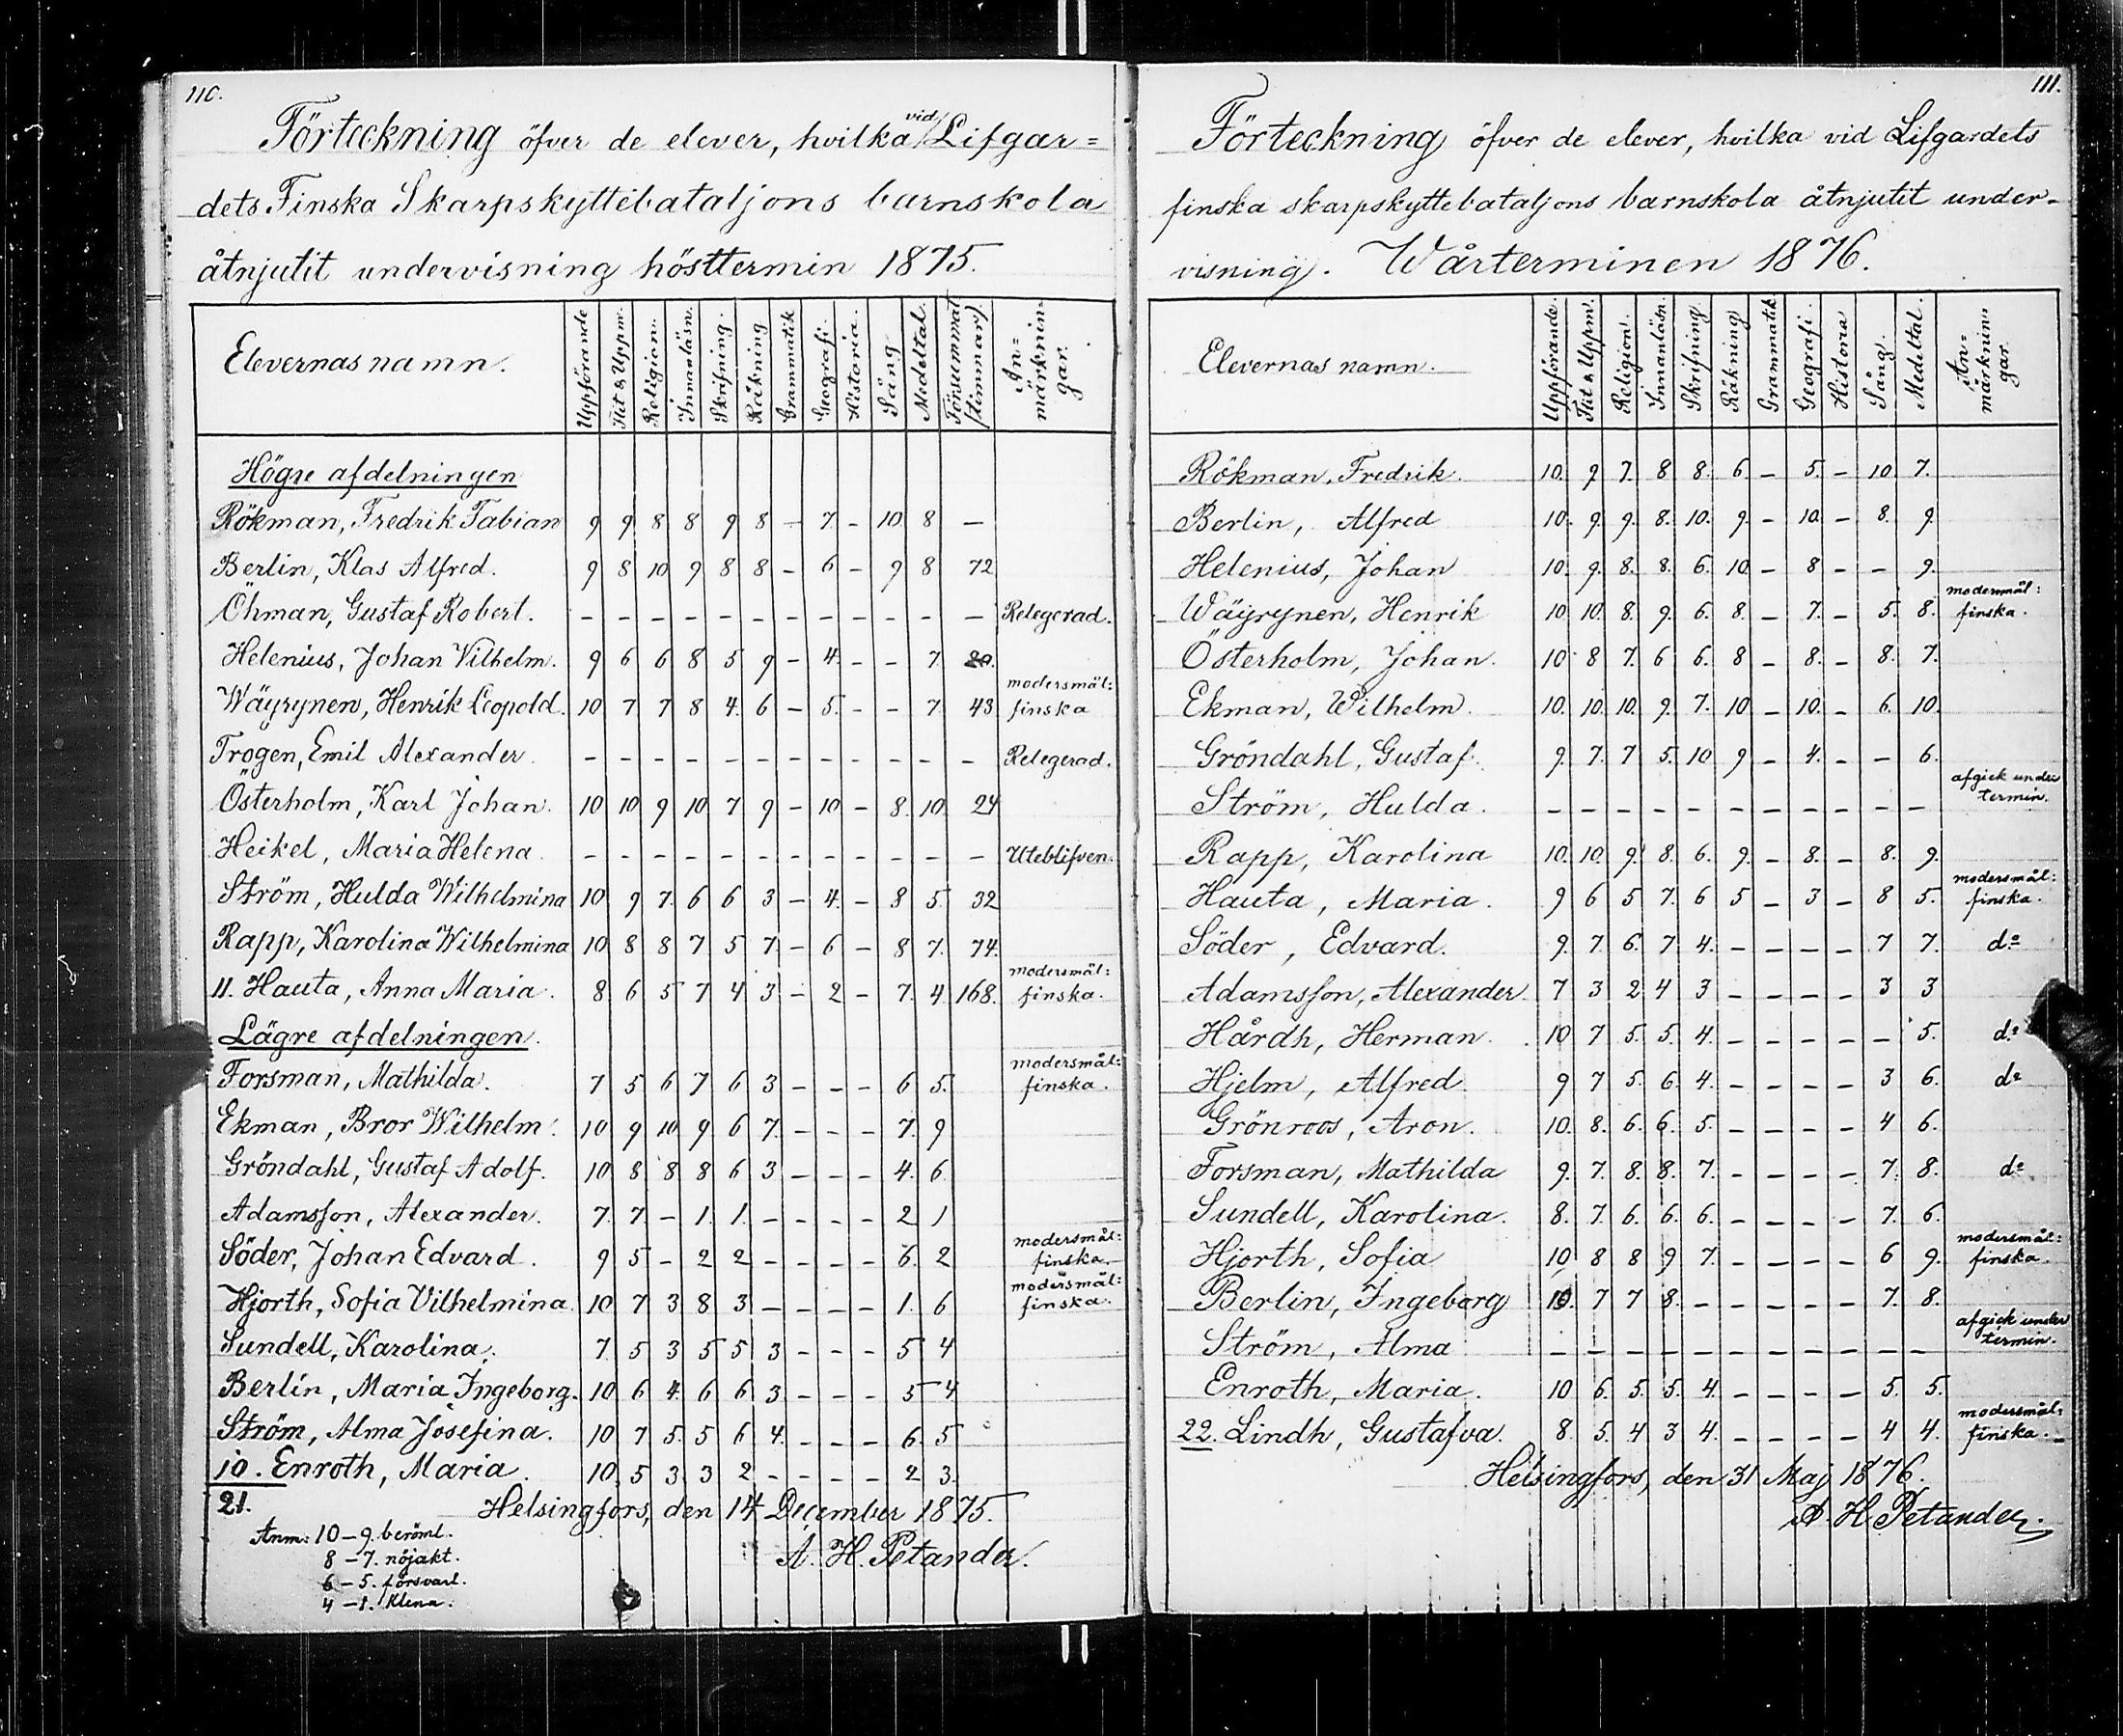 110.
Förteckning öfver de elever, hvilka vid Lifgar=
dets Finska Skarpskyttebataljons barnskola
åtnjutit undervisning hösttermin 1875.
Elevernas namn. Uppförande Flit & Uppm. Religion. Innanläsn. Skrifning. Räkning Grammatik Geografi. Historia. Sång Medeltal. Försummat timmar. An=märkningar.
Högre afdelningen
Rökman, Fredrik Fabian 9 9 8 8 9 8 – 7. – 10 8 –
Berlin, Klas Alfred. 9 8 10 9 8 8 – 6 – 9 8 72
Öhman, Gustaf Robert. – – – – – – – – – – – – Relegerad.
Helenius, Johan Vilhelm. 9 6 6 8 5 9 – 4. – – 7. 20.
Wäyrynen, Henrik Leopold. 10 7 7 8 4. 6 – 5. – – 7. 43 modersmål: finska
Trogen, Emil Alexander. – – – – – – – – – – – – Relegerad.
Österholm, Karl Johan. 10 10 9 10 7 9 – 10 – 8. 10. 24
Heikel, Maria Helena. – – – – – – – – – – – – Uteblifven.
Ström, Hulda Wilhelmina 10 9 7. 6 6 3 – 4. – 8 5. 32
Rapp, Karolina Wilhelmina 10 8 8 7 5 7. – 6 – 8 7. 74.
11. Hauta, Anna Maria. 8 6 5 7 4 3 – 2 – 7. 4 168. modersmål: finska.
Lägre afdelningen.
Forsman, Mathilda. 7 5 6 7 6 3 – – – 6 5. modersmål: finska.
Ekman, Bror Wilhelm. 10 9 10 9 6 7. – – – 7. 9
Gröndahl, Gustaf Adolf. 10 8 8 8 6 3 – – – 4. 6
Adamsson, Alexander. 7. 7. – 1. 1. – – – – 2 1
Söder, Johan Edvard. 9 5 – 2 2 – – – – 6. 2 modersmål: finska.
Hjorth, Sofia Vilhelmina. 10 7 3 8 3 – – – – 1. 6 modersmål: finska.
Sundell, Karolina. 7. 5 3 5 5 3 – – – 5 4
Berlin, Maria Ingeborg. 10 6 4. 6 6 3 – – – 5 4
Ström, Alma Josefina. 10 7 5. 5 6 4. – – – 6. 5
10. Enroth, Maria. 10 5 3 3 2 – – – – 2 3.
21. Helsingfors, den 14 December 1875.
Anm: 10–9. beröml.
8–7. nöjakt. A. H. Petander.
6–5. försvarl.
4–1. Klena.
111.
Förteckning öfver de elever, hvilka vid Lifgardets
finska skarpskyttebataljons barnskola åtnjutit under-
visning. Wårterminen 1876.
Elevernas namn. Uppförande. Flit & Uppm. Religion. Innanläsn. Skrifning. Räkning Grammatik Geografi. Historia Sång. Medeltal. An=märkningar.
Rökman, Fredrik. 10. 9. 7. 8 8. 6 – 5. – 10 7.
Berlin, Alfred 10. 9. 9. 8. 10. 9. – 10. – 8. 9.
Helenius, Johan 10. 9. 8. 8. 6. 10 – 8 – – 9.
Wäyrynen, Henrik 10. 10. 8. 9. 6. 8. – 7. – 5. 8. modersmål: finska.
Österholm, Johan. 10 8 7. 6 6. 8 – 8. – 8. 7.
Ekman, Wilhelm. 10. 10. 10. 9. 7. 10 – 10. – 6. 10.
Gröndahl, Gustaf. 9. 7. 7 5. 10 9 – 4. – – 6.
Ström, Hulda. – – – – – – – – – – – afgick under termin.
Rapp, Karolina 10. 10. 9. 8. 6. 9. – 8. – 8. 9.
Hauta, Maria. 9 6 5 7. 6 5 – 3 – 8 5. modersmål: finska.
Söder, Edvard. 9. 7. 6. 7 4. – – – – 7 7. do
Adamsson, Alexander. 7 3 2 4 3 – – – – 3 3
Hårdh, Herman. 10 7 5. 5. 4. – – – – – 5. do
Hjelm, Alfred. 9 7 5. 6. 4. – – – – 3 6. do
Grönroos, Aron. 10. 8. 6. 6. 5. – – – – 4 6.
Forsman, Mathilda 9. 7. 8. 8. 7. – – – – 7. 8. do
Sundell, Karolina. 8. 7. 6. 6. 6. – – – – 7. 6.
Hjorth, Sofia 10 8 8 9 7. – – – – 6 9. modersmål: finska.
Berlin, Ingeborg 10. 7 7 8. – – – – – 7. 8.
Ström, Alma – – – – – – – – – – – afgick under termin.
Enroth, Maria. 10 6. 5. 5. 4. – – – – 5. 5.
22. Lindh, Gustafva. 8. 5. 4 3 4. – – – – 4 4. modersmål: finska.
Helsingfors, den 31 Maj 1876.
A. H. Petander.